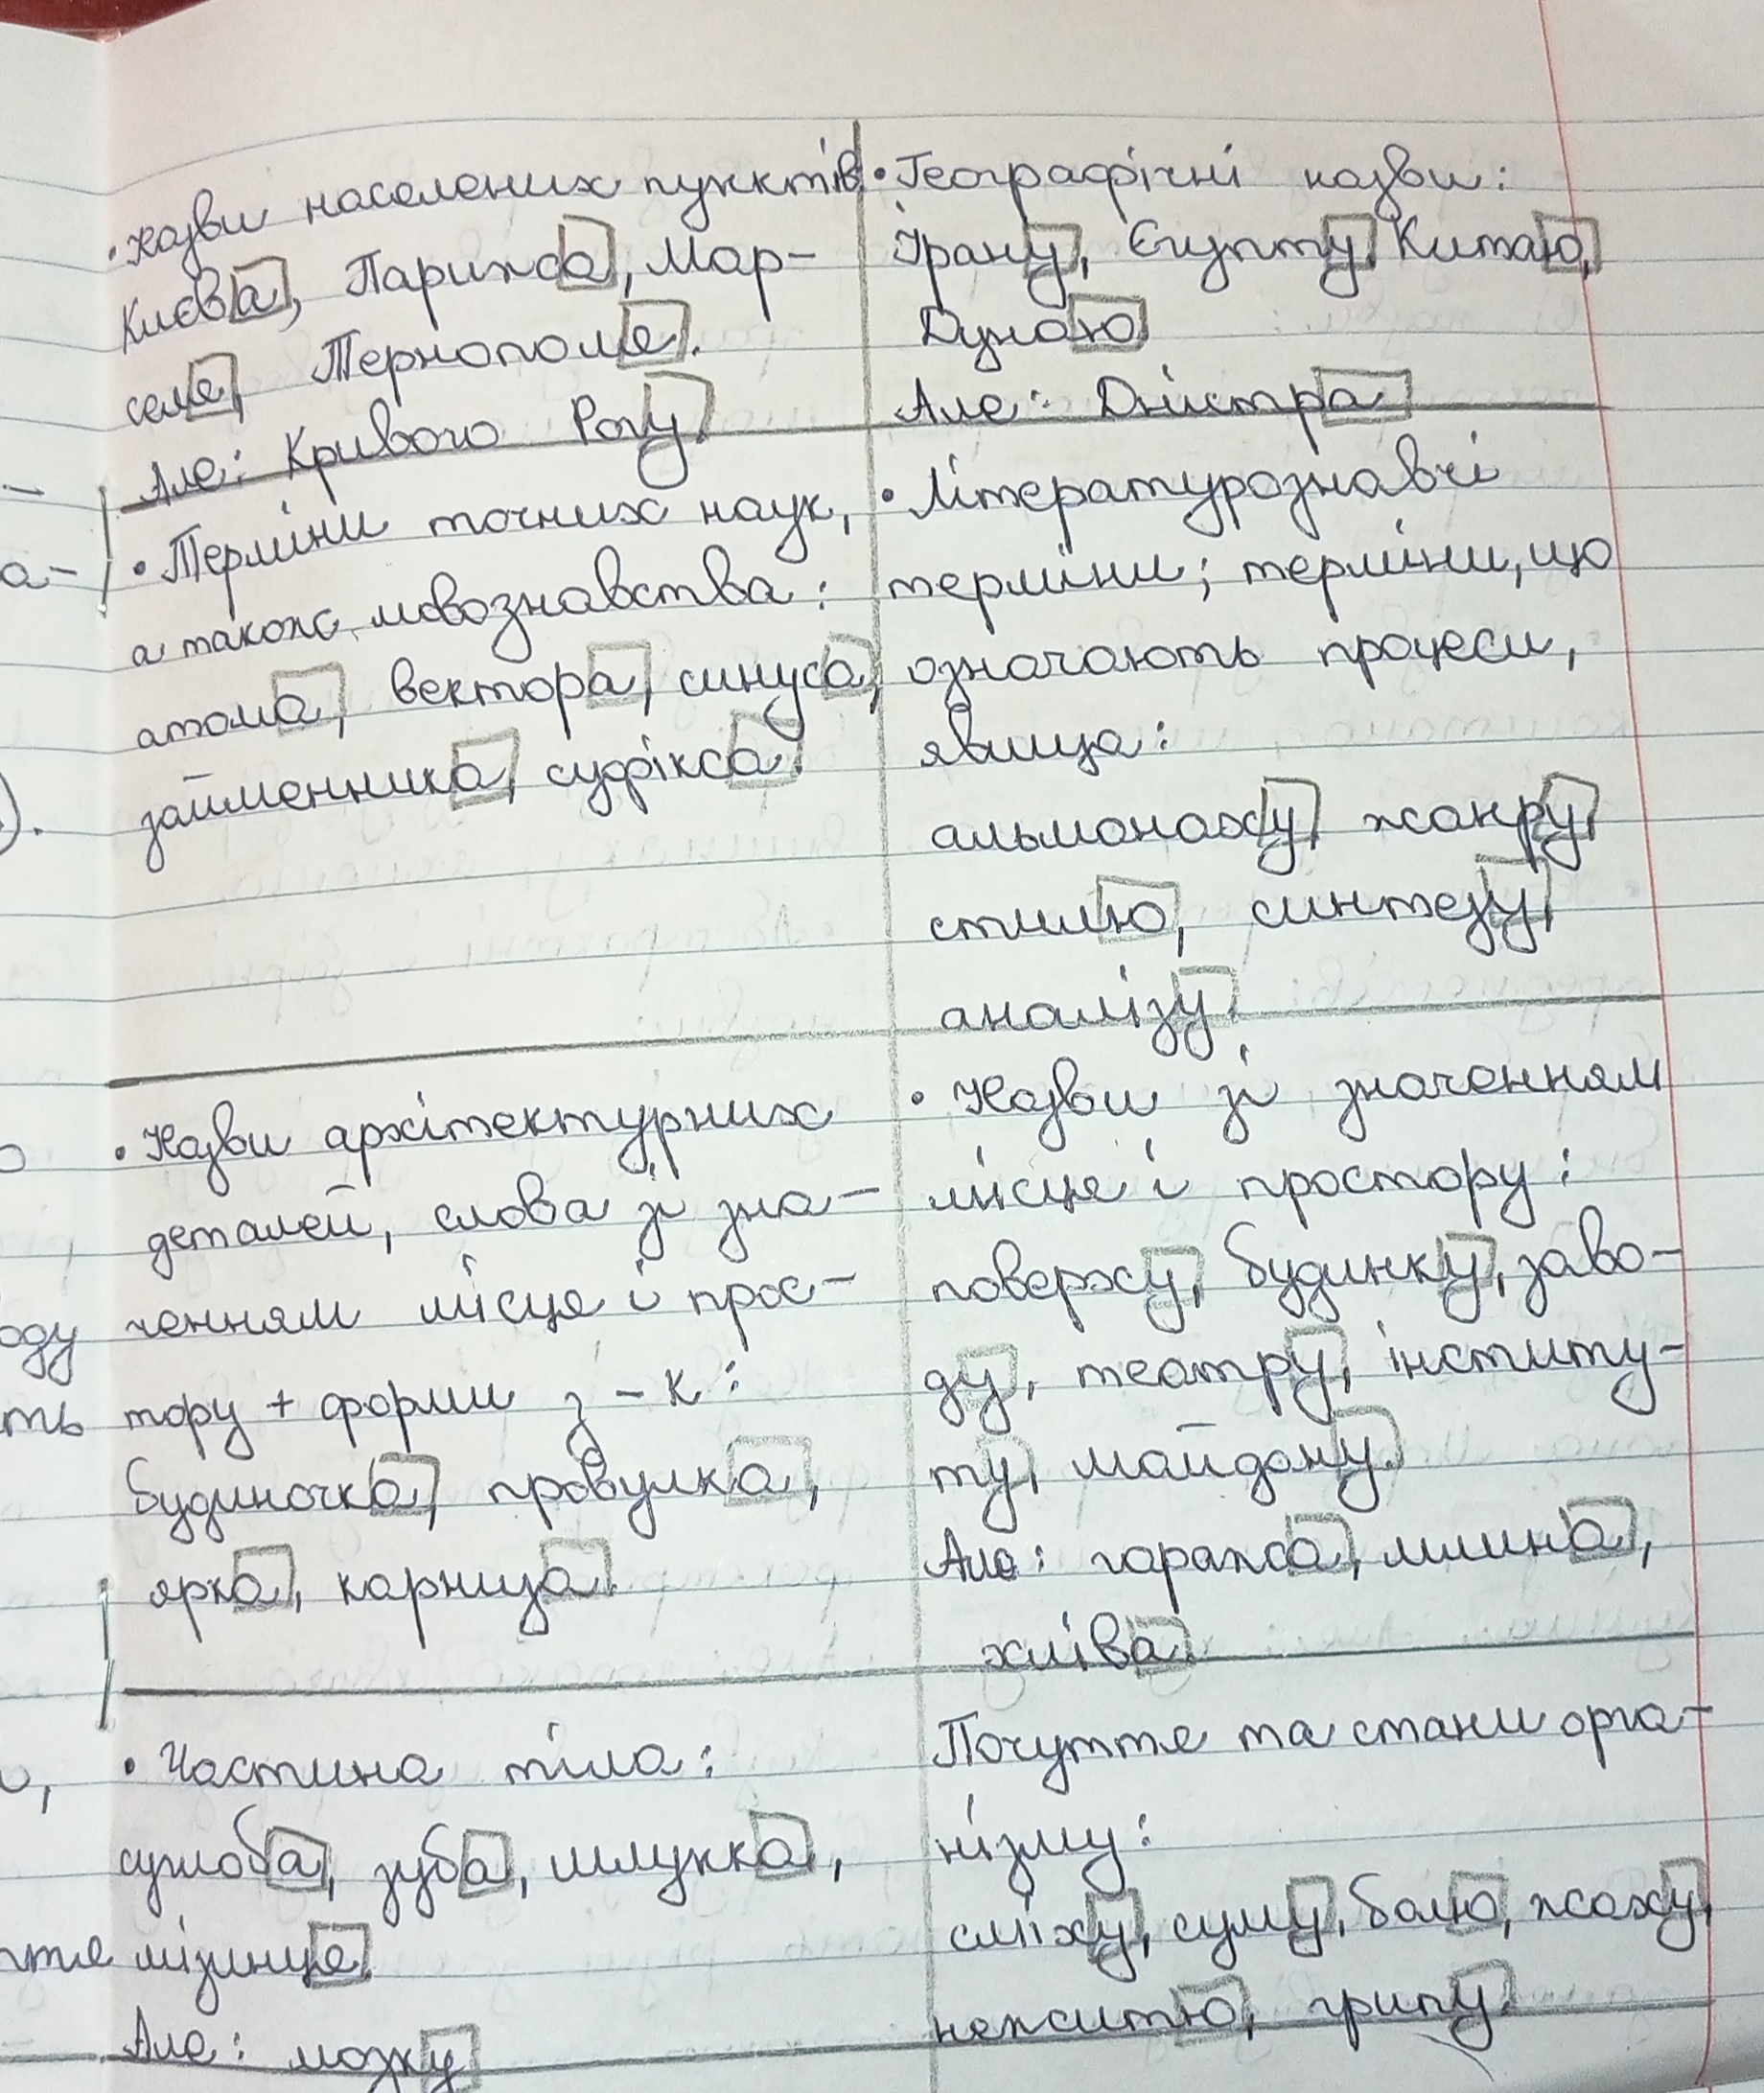 • Назви населених пунктів:
Києва, Парижа, Мар-
селя, Тернополя.
Але: Кривого Рогу.
• Терміни точних наук,
а також мовознавства:
атома, вектора, синуса,
займенника, суфікса.
• Назви архітектурних
деталей, слова зі зна-
ченням місця і прос-
тору + форми з -к:
будиночка, провулка,
ярка, карниза.
• Частина тіла:
суглоба, зуба, шлунка,
мізинця.
Але: мозку
• Географічні назви:
Ірану, Єгипту, Китаю,
Дунаю
Але: Дністра
• Літературознавчі
терміни; терміни, що
означають процеси,
явища:
альманаху, жанру,
стилю, синтезу,
аналізу.
• Назви зі значенням
місця і простору:
поверху, будинку, заво-
ду, театру, інституту-
ту, майдану.
Але: гаража, млина,
хліва.
Почуття та стани орга-
нізму:
сміху, суму, болю, жаху,
нежитю, грипу.
-
а-
).
о
оду
ть
и,
ття